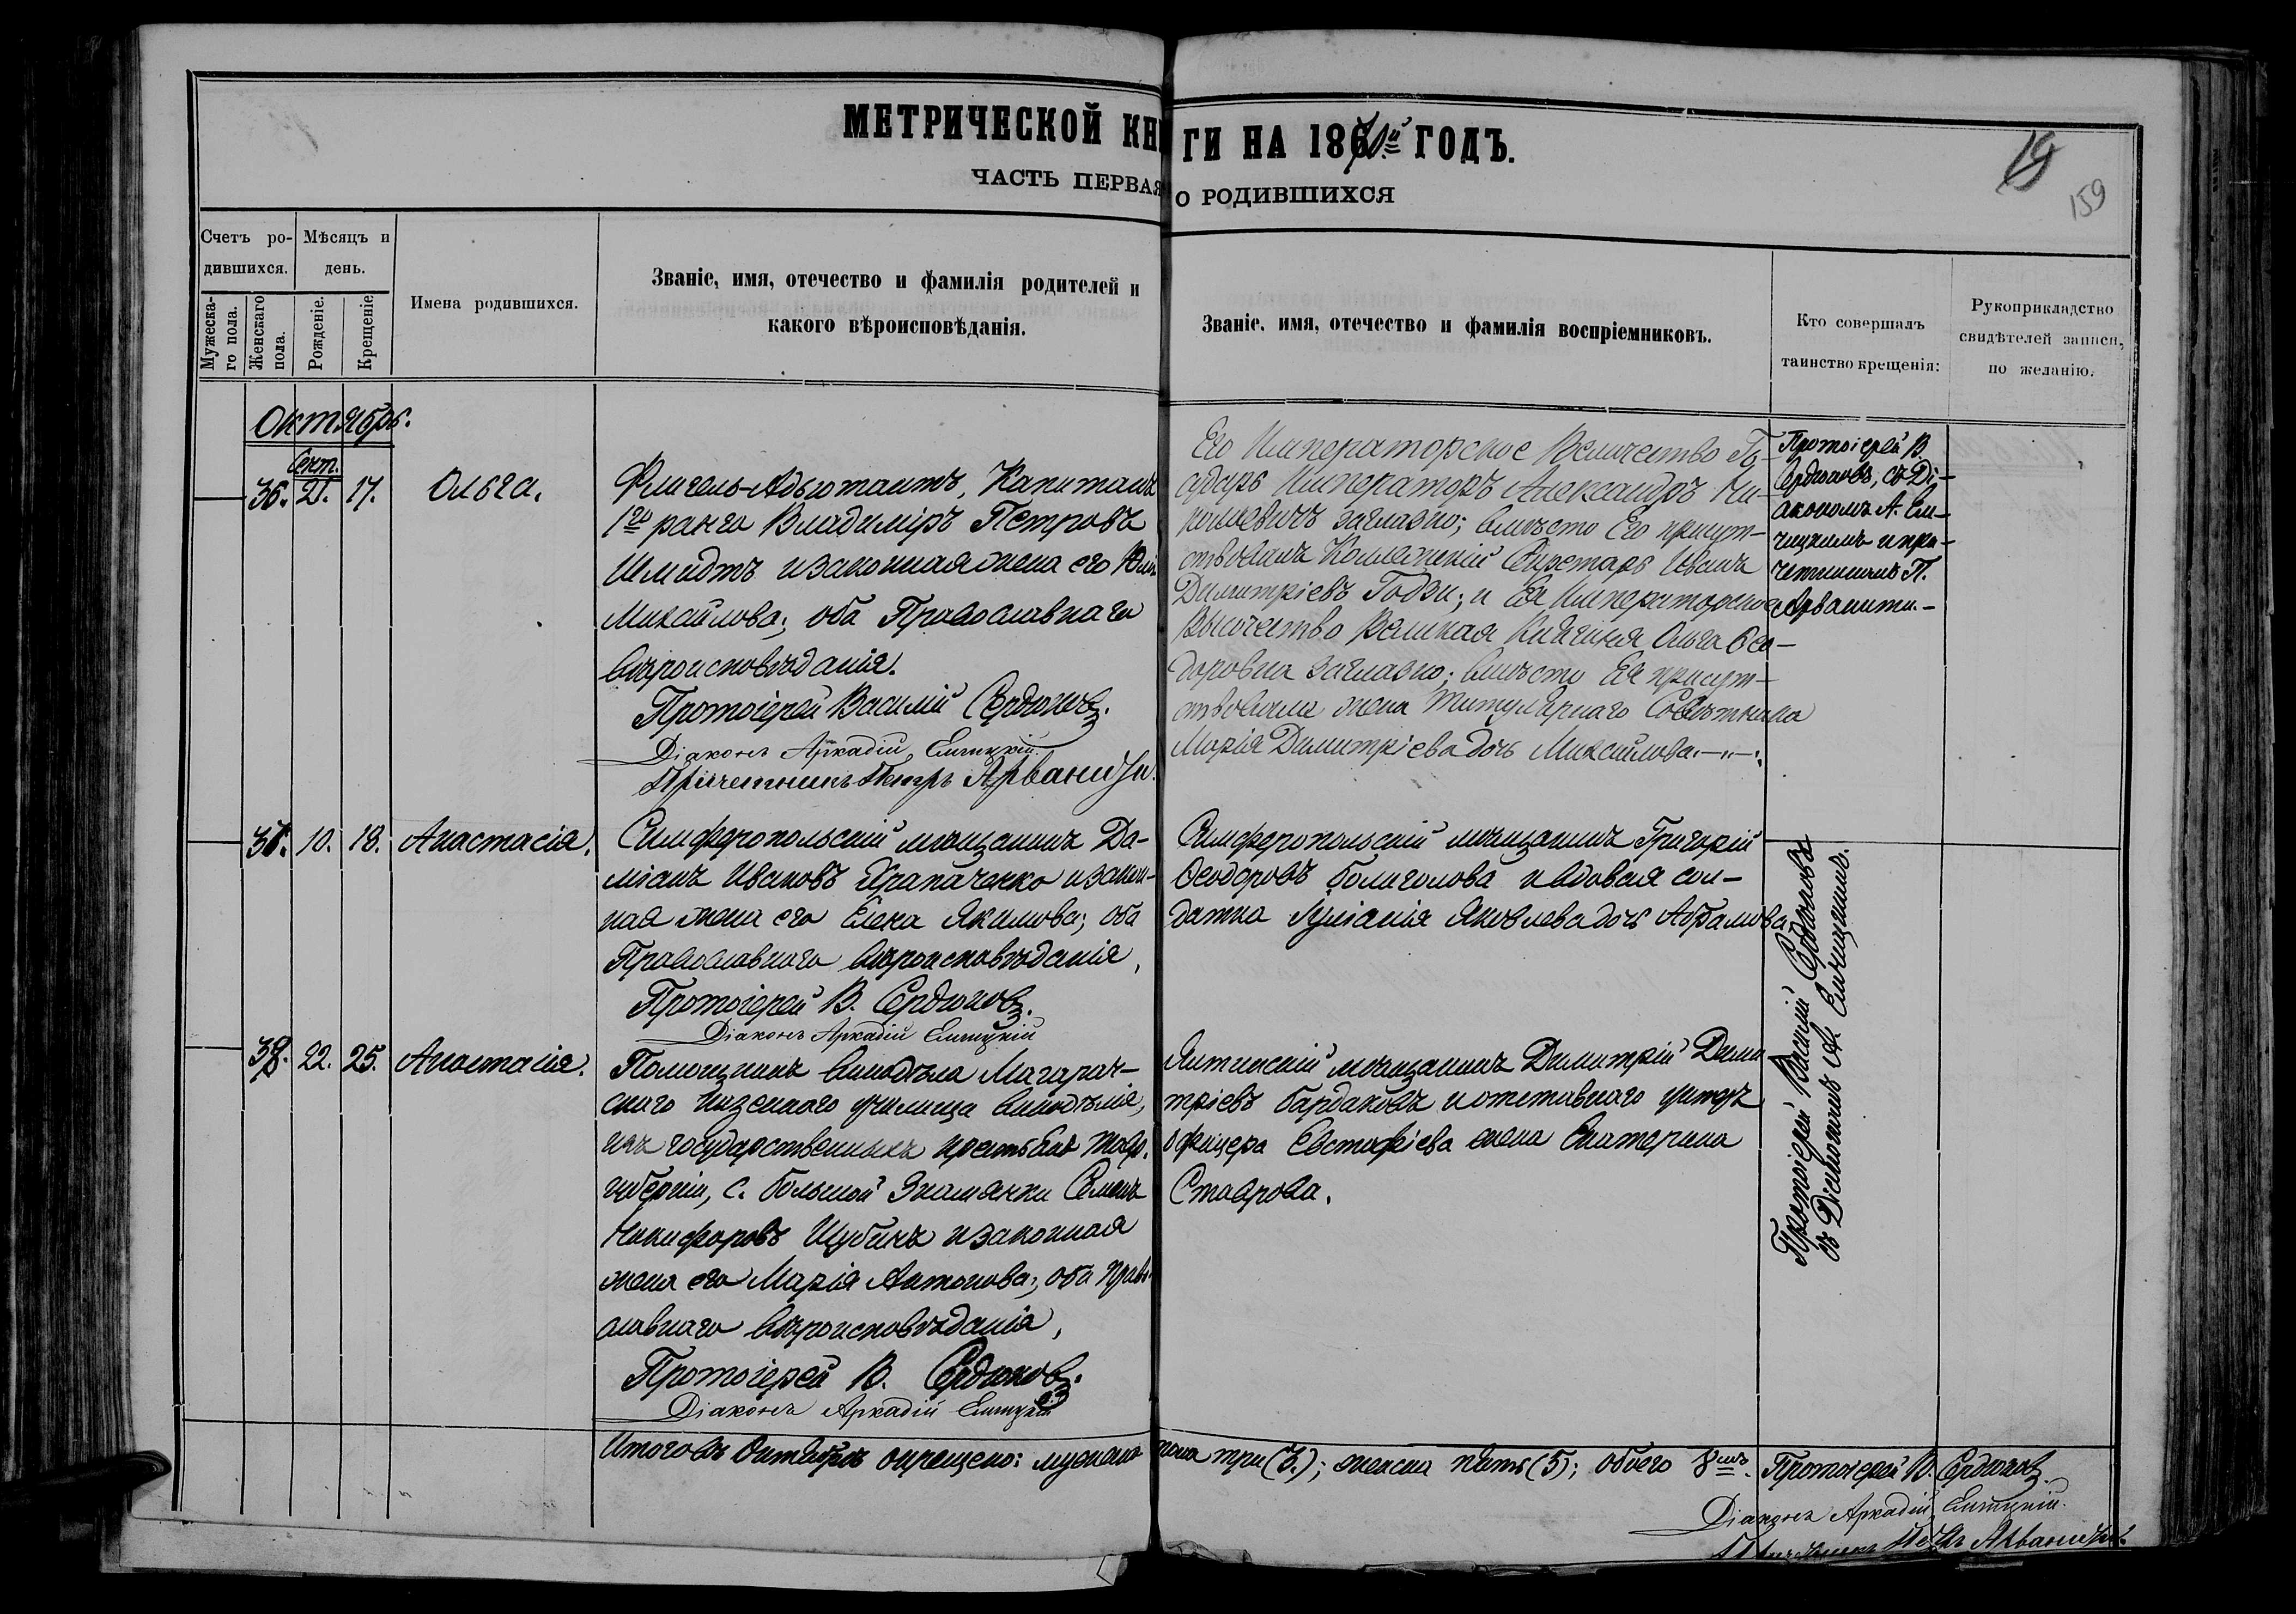 МЕТРИЧЕСКОЙ КНИГИ НА 1870й ГОДЪ.
ЧАСТЬ ПЕРВАЯ О РОДИВШИХСЯ
19
159
Счетъ ро-
дившихся.
Мѣсяцъ и
день.
Мужеска-
го пола.
Женскаго
пола.
Рожденіе.
Крещеніе
Имена родившихся.
Званіе, имя, отечество и фамилія родителей и
какого вѣроисповѣданія.
Званіе, имя, отечество и фамилія воспріемниковъ.
Кто совершалъ
таинство крещенія:
Рукоприкладство
свидѣтелей записи,
по желанію.
Октябрь.
Сент.
36. 21. 17. Ольга.
Флигель-Адьютантъ, Капитанъ
1го ранга Владиміръ Петровъ
Шмидтъ и законная жена его Юлія
Михайлова; оба Православнаго
вѣроисповѣданія.
Протоіерей Василій Сердюковъ.
Діаконъ Аркадій
Причетникъ Петръ Арваниди.
Его Императорское Величество Го-
сударь Императоръ Александръ Ни-
колаевичъ заглазно; вмѣсто Его присут-
ствовалъ Коллежскій Секретарь Иванъ
Димитріевъ; и Ея Императорское
Высочество Великая Княгиня Ольга Ѳео-
доровна заглазно; вмѣсто Ея присут-
ствовала жена Титулярнаго Совѣтника
Марія Димитріева дочь Михайлова.
Протоіерей В.
Сердюковъ, съ Ді-
акономъ А.
и при-
четникомъ П.
Арванити.
37. 10. 18. Анастасія.
Симферопольскій мѣщанинъ Да-
міанъ Ивановъ Храпаченко и закон-
ная жена его Елена Якимова; оба
Православнаго вѣроисповѣданія,
Протоіерей В. Сердюковъ.
Діаконъ Аркадій
Симферопольскій мѣщанинъ Григорій
Ѳеодоровъ Болиголова и вдовая сол-
датка Іуліанія Яковлева дочь Абрамова
Протоіерей Василій Сердюковъ
съ Діакономъ А.
38. 22. 25. Анастасія.
Помощникъ винодѣла Магарач-
скаго казеннаго училища винодѣлія,
изъ государственныхъ крестьянъ Тавр.
губерніи, с. Большой Знамянки Семенъ
Никифоровъ Шубинъ и законная
жена его Марія Антонова; оба право-
славнаго вѣроисповѣданія,
Протоіерей В. Сердюковъ.
Діаконъ Аркадій
Ялтинскій мѣщанинъ Димитрій Дими-
тріевъ Бардаковъ и отставнаго унтеръ
офицера Евстафіева жена Екатерина
Ставрова.
Итого въ Октябрѣ окрещено: мужеска пола три (3.); женска пять (5); обоего 8мь.
Протоіерей В. Сердюковъ.
Діаконъ Аркадій
Причетникъ Петръ Арваниди.